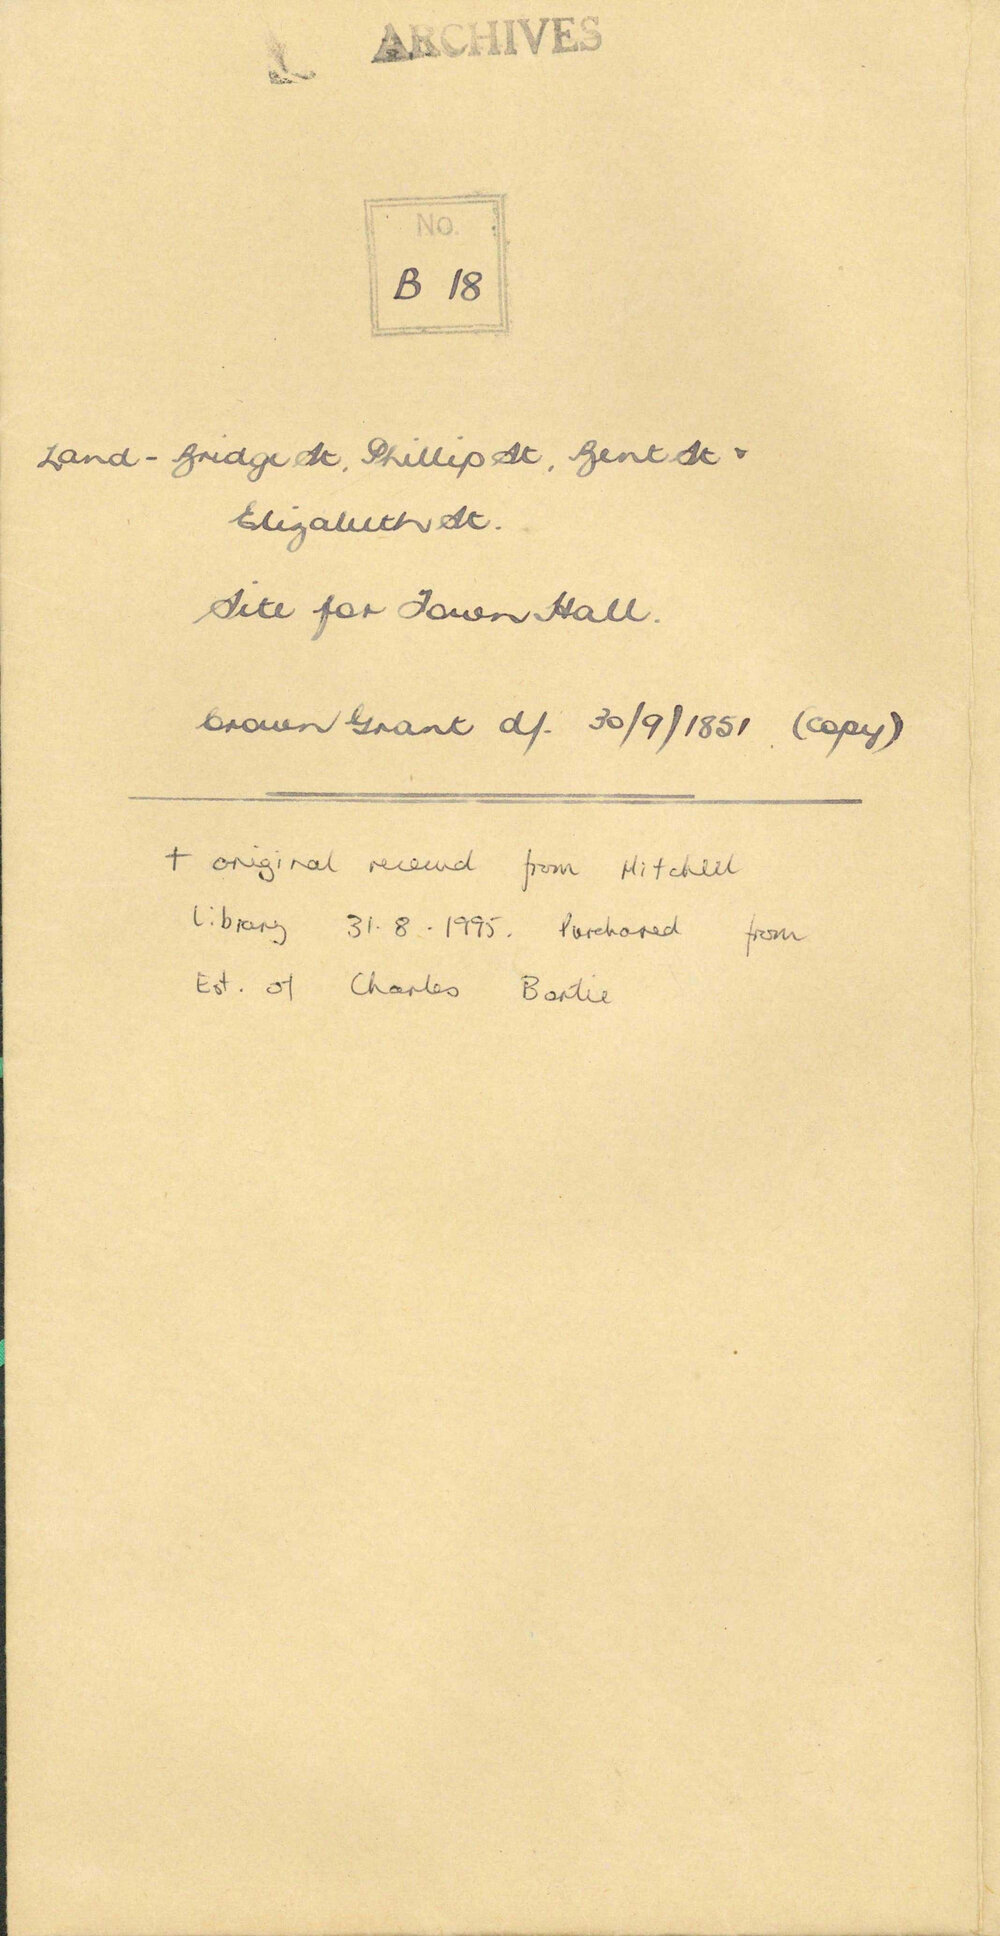 ARCHIVES
No.
B 18
Land - Bridge St, Phillip St, Bent St &
Elizabeth St.
Site for Town Hall.
Crown Grant d/. 30/9/1851 (copy)
+ original received from Mitchell
Library 31.8.1995. Purchased from
Est. of Charles Bartie